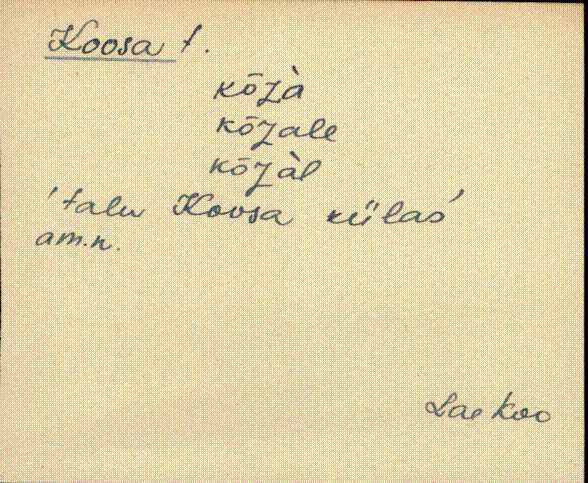 Koosa t.
kōʒà
kōʒale
kōʒàl
'talu Koosa külas'
am.n.
Lae Koo